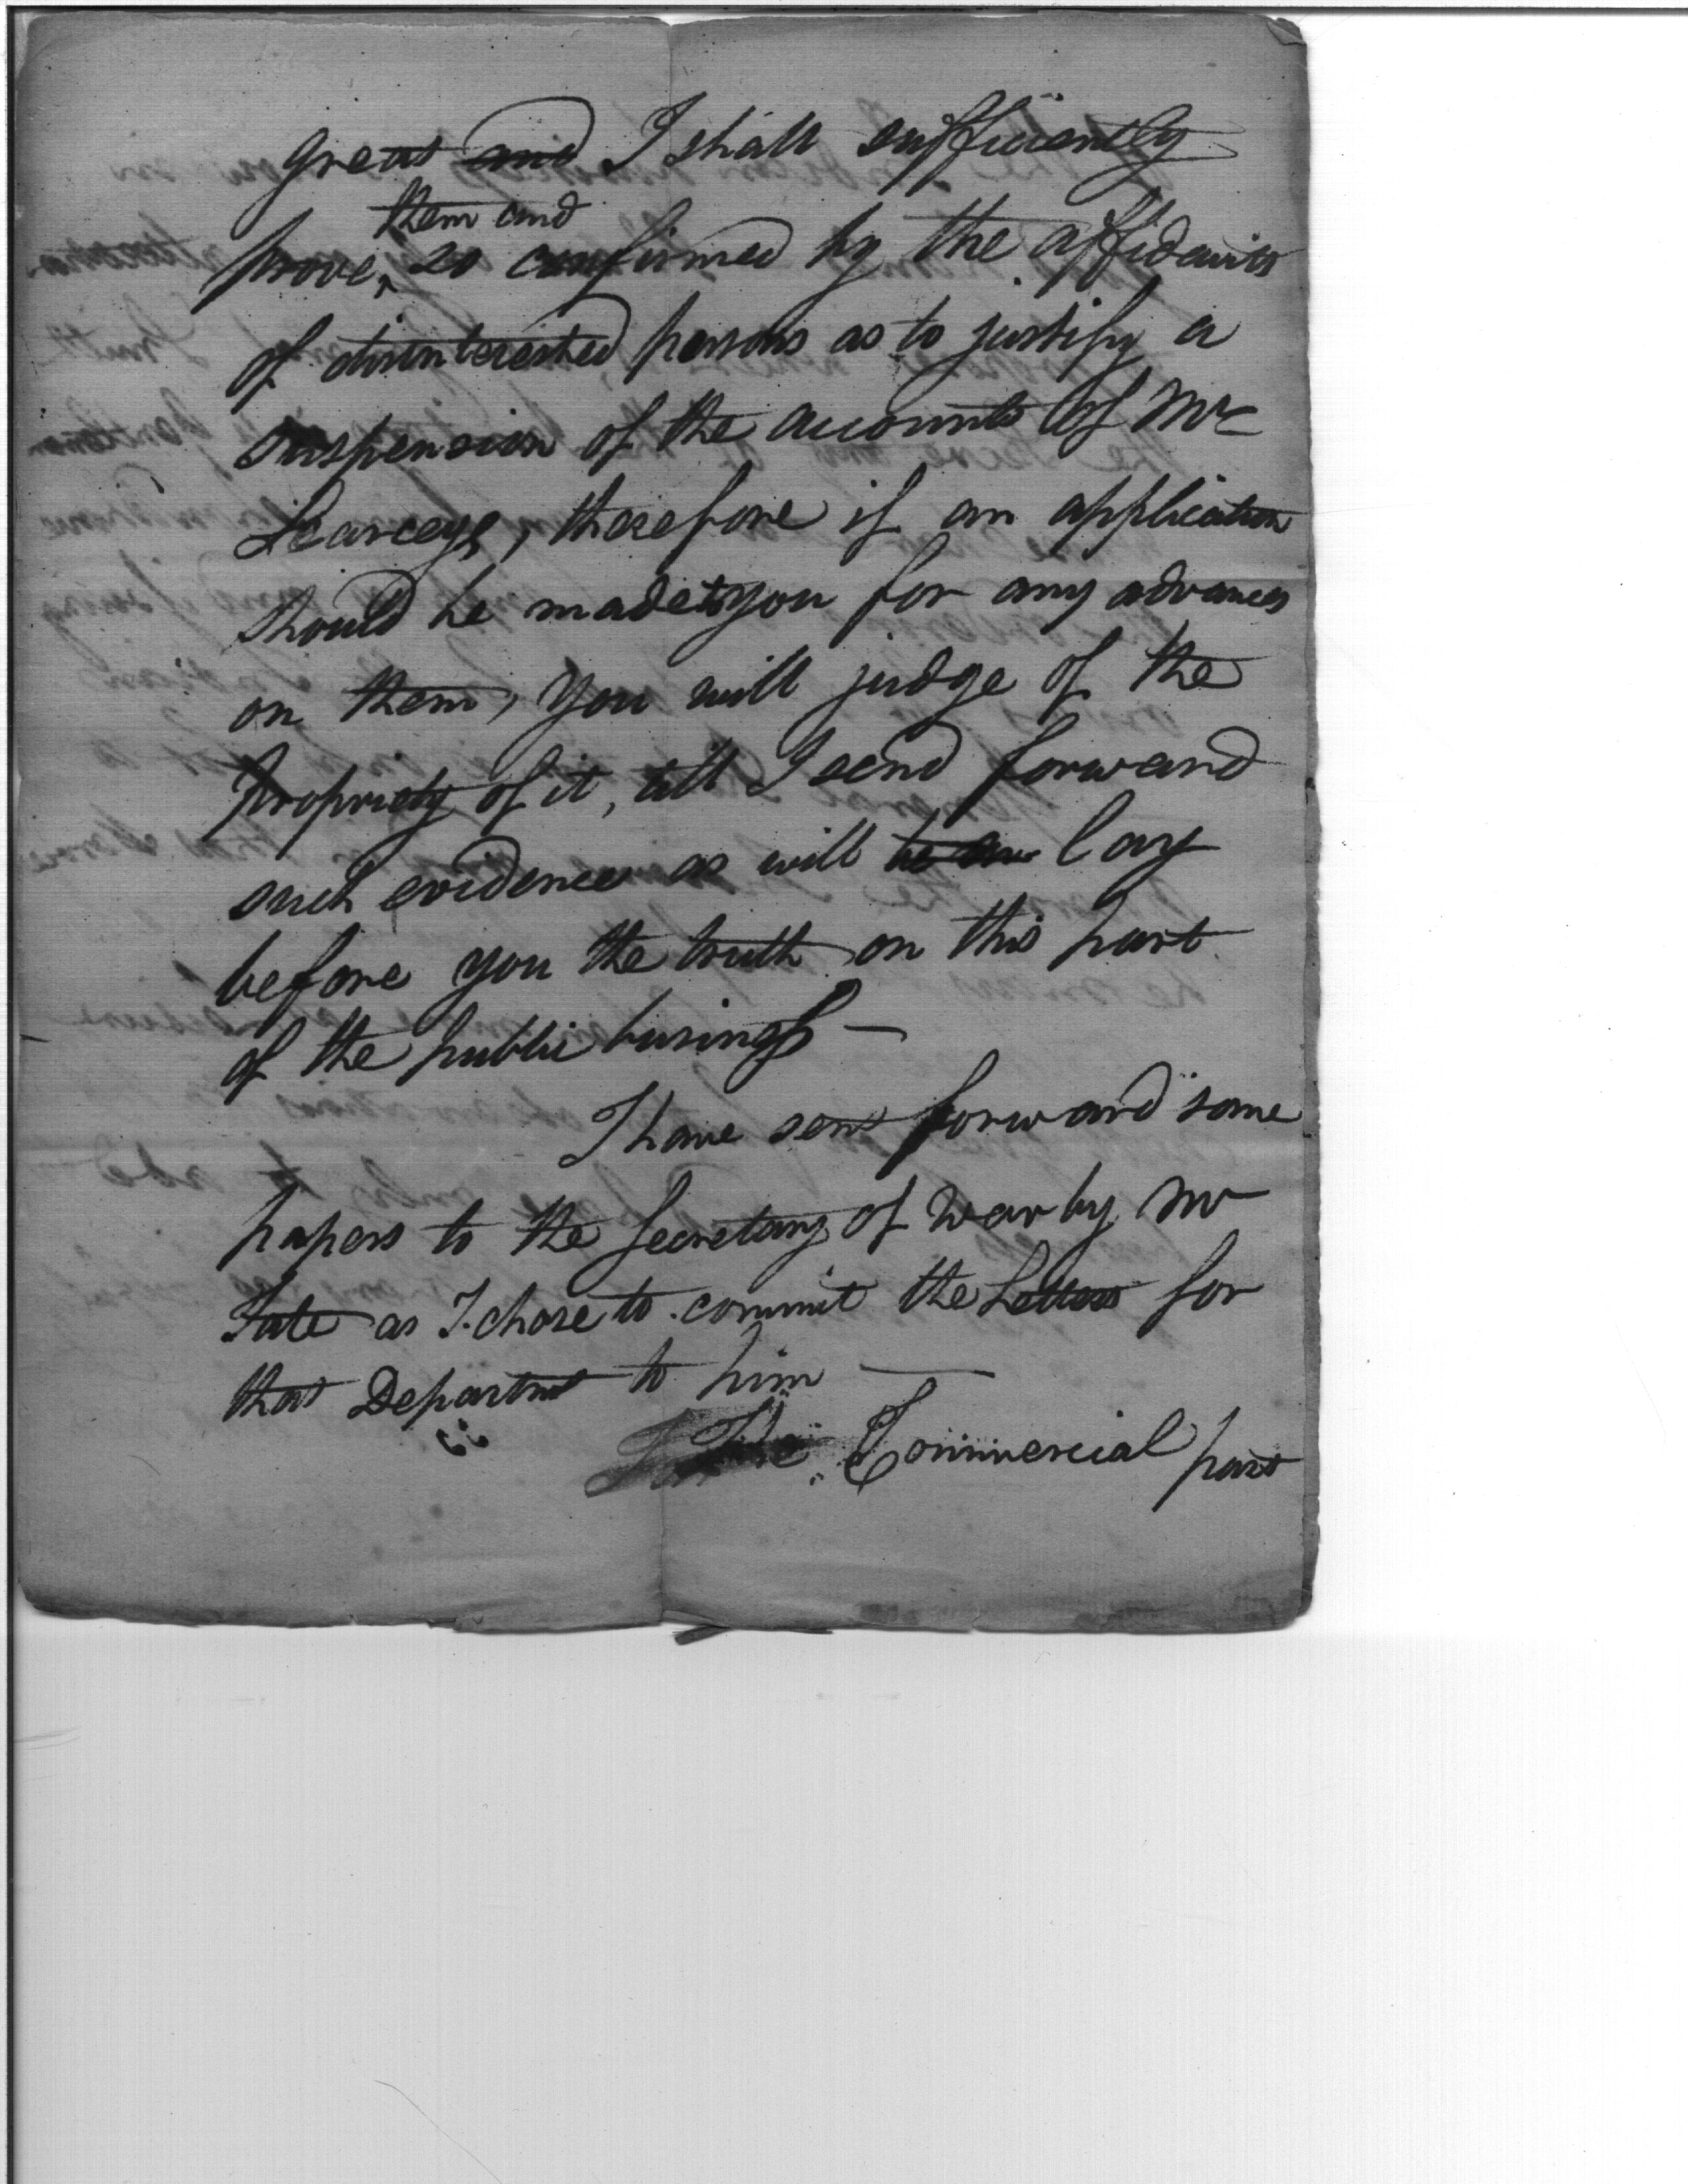 great and I shall sufficiently
them and
prove, so confirmed by the affidavits
of disinterested persons as to justify a
suspension of the accounts of Mr
Pearceys, therefore if an application
should be made to you for any advances
on them, you will judge of the
propriety of it, till I send forward
such evidence as will lay
before you the truth on this part
of the public business —
I have sent forward some
papers to the Secretary of War by Mr
Tate as I chose to commit the Letters for
that Departmt to him —
The Commercial part